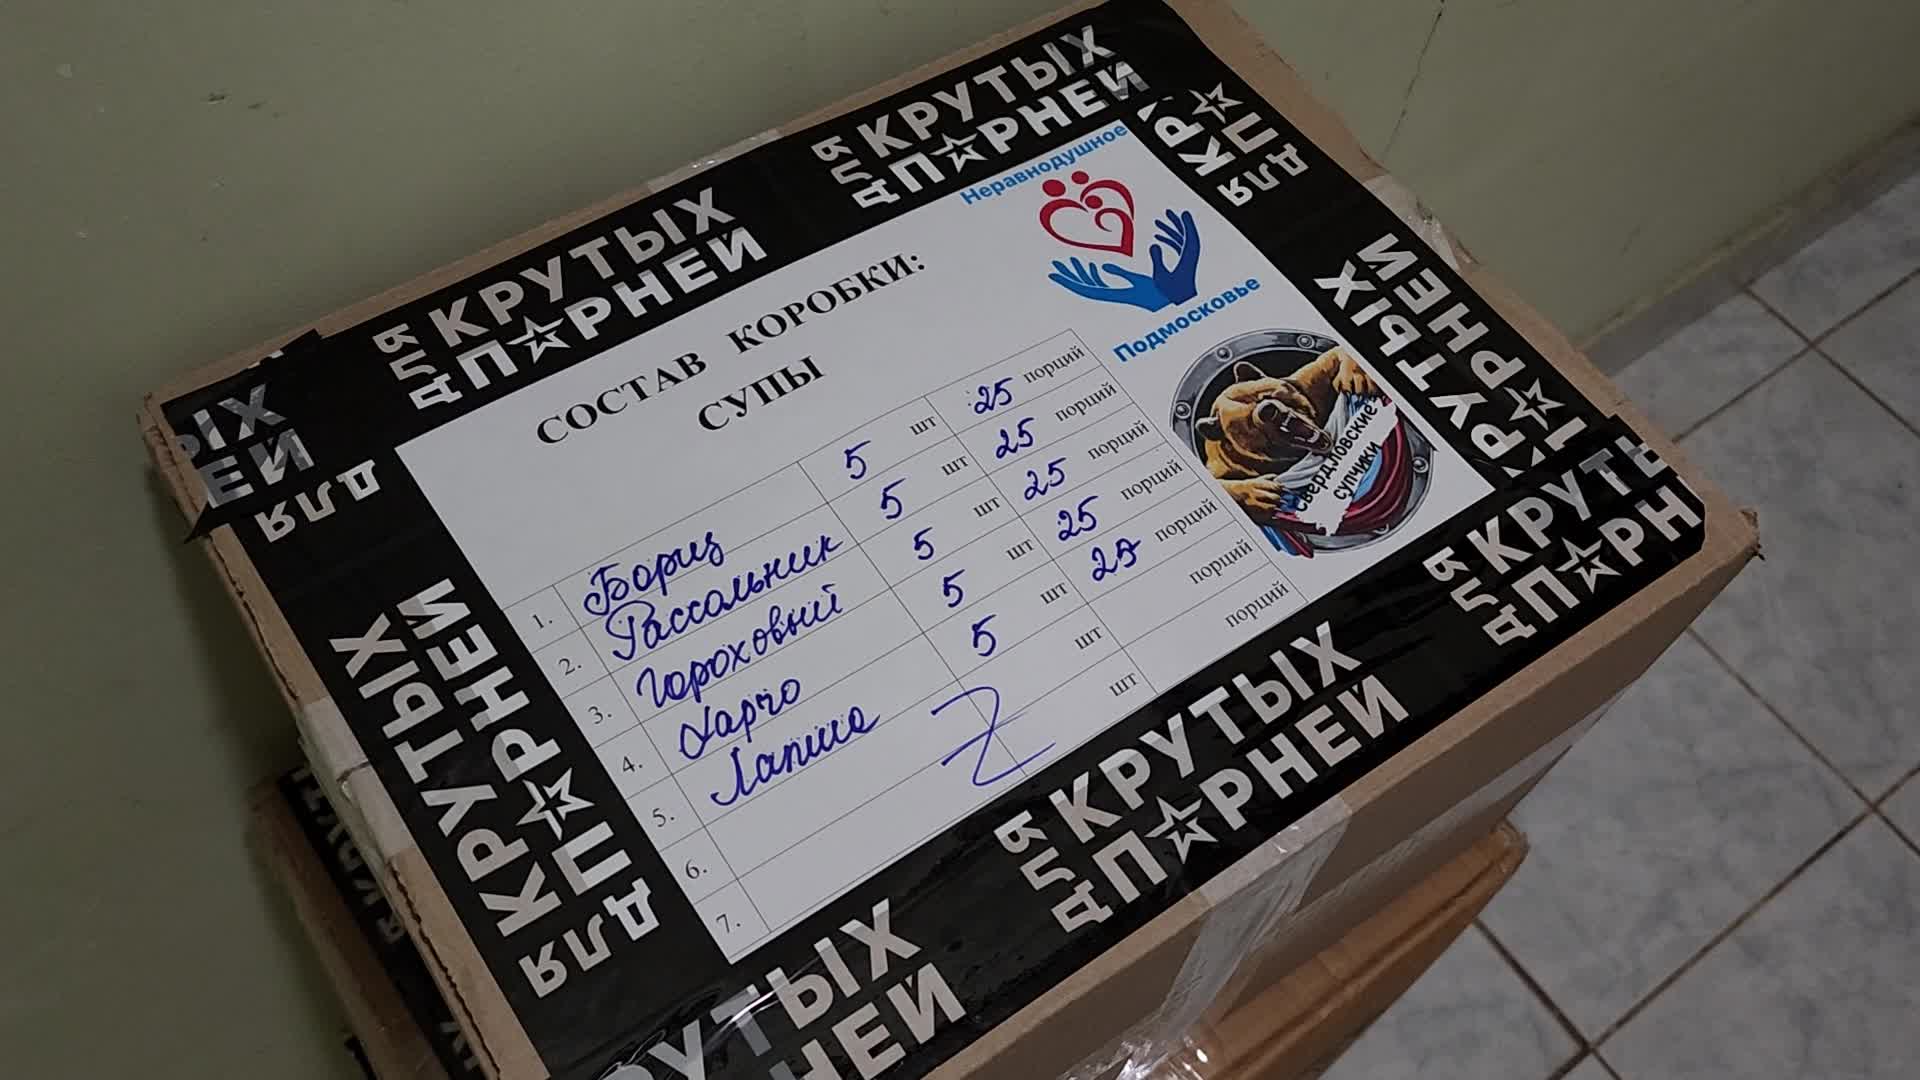 ДЛЯ КРУТЫХ ПАРНЕЙ
ДЛЯ КРУТЫХ ПАРНЕЙ
Неравнодушное
Подмосковье
СОСТАВ КОРОБКИ:
СУПЫ
1. Борщ 5 шт 25 порций
2. Рассольник 5 шт 25 порций
3. Гороховый 5 шт 25 порций
4. Харчо 5 шт 25 порций
5. Лапша 5 шт 25 порций
6. шт порций
7. шт порций
Z
Свердловские
супчики
КРУТЫХ ПАРНЕЙ
ДЛЯ КРУТЫХ ПАРНЕЙ
ДЛЯ КРУТЫХ ПАРНЕЙ